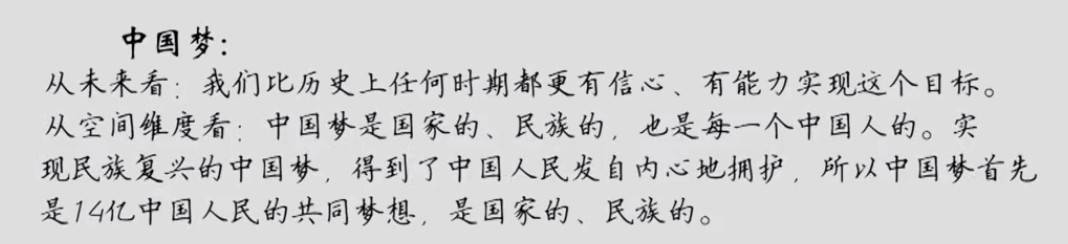 中国梦：
从未来看：我们比历史上任何时期都更有信心、有能力实现这个目标。
从空间维度看：中国梦是国家的、民族的，也是每一个中国人的。实
现民族复兴的中国梦，得到了中国人民发自内心地拥护，所以中国梦首先
是14亿中国人民的共同梦想，是国家的、民族的。